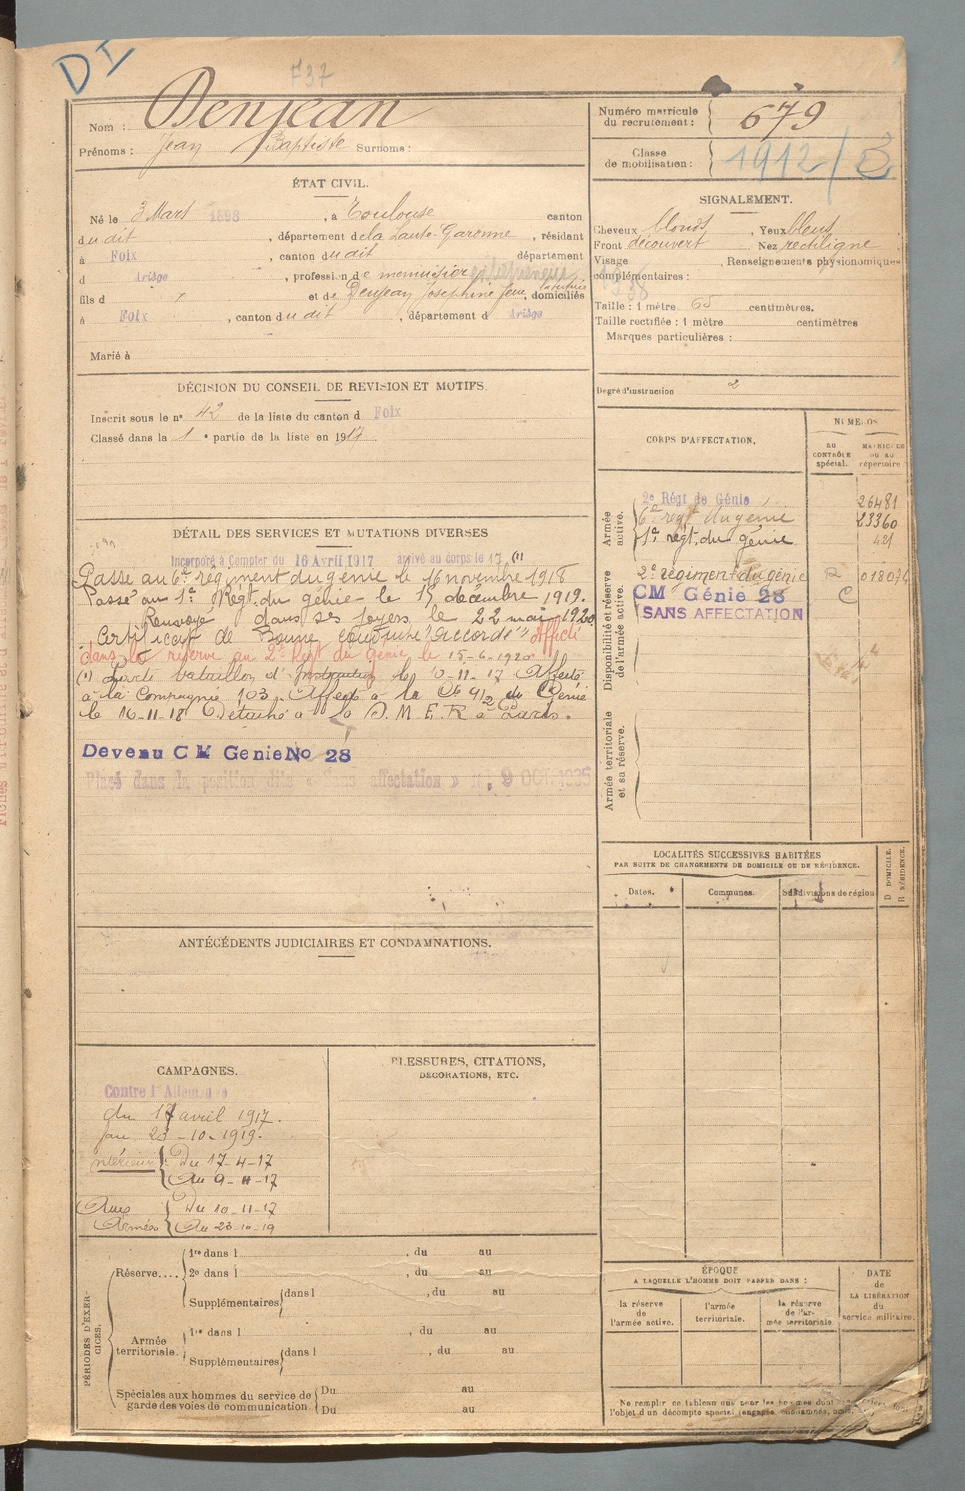 DI
F37
Nom : Denjean
Prénoms : Jean Baptiste Surnoms :
Numéro matricule du recrutement : 679
Classe de mobilisation : 1912/3
ÉTAT CIVIL.
Né le 3 Mars 1898, à Toulouse canton
dudit, département de la Haute-Garonne, résidant
à Foix, canton dudit département
d Ariège, profession de menuisier
fils d et de Denjean Josephine Jne, domiciliés
à Foix, canton dudit, département d Ariège
Marié à
SIGNALEMENT.
Cheveux blonds, Yeux bleus
Front découvert Nez rectiligne
Visage, Renseignements physionomiques
complémentaires :
Taille : 1 mètre 65 centimètres.
Taille rectifiée : 1 mètre centimètres
Marques particulières :
Degré d'instruction 2
DÉCISION DU CONSEIL DE REVISION ET MOTIFS.
Inscrit sous le nº 42 de la liste du canton d Foix
Classé dans la 1e partie de la liste en 1917
CORPS D'AFFECTATION.
NUMÉROS
AU CONTRÔLE spécial.
MATRICULE OU AU répertoire
Armée active.
2e Régt de Génie 26481
6e régt du génie 23360
1e régt. du génie 421
Disponibilité et réserve de l'armée active.
2e régiment du génie
CM Génie 28 C
SANS AFFECTATION
Armée territoriale et sa réserve.
DÉTAIL DES SERVICES ET MUTATIONS DIVERSES
Incorporé à Compter du 16 Avril 1917 arrivé au corps le 17 (1)
Passé au 6e régiment du génie le 16 novembre 1918
Passé au 1e Régt. du génie le 15 décembre 1919.
Renvoyé dans ses foyers le 22 mai 1920
Certificat de Bonne conduite "accordé" Affecté
dans la réserve au 2e Régt du Génie le 15-6-1920
(1) bataillon d'Instruction le 11-17 Affecté
à la Compagnie 103. Affecté à la Cie 4/2 du Génie
le 16-11-18 Détaché à D.M.E.R à Paris.
Devenu CM Genie No 28
Placé dans la position dite « Sans affectation » 9 OCT. 1935
LOCALITÉS SUCCESSIVES HABITÉES
PAR SUITE DE CHANGEMENTS DE DOMICILE OU DE RÉSIDENCE.
Dates. Communes. Subdivisions de région
D DOMICILE.
R RÉSIDENCE.
ANTÉCÉDENTS JUDICIAIRES ET CONDAMNATIONS.
CAMPAGNES.
Contre l'Allemagne
du 17 avril 1917.
au 23-10-1919.
Intérieur { Du 17-4-17
Au 9-11-17
Aux Armées { Du 10-11-17
Au 23-10-19
BLESSURES, CITATIONS,
DÉCORATIONS, ETC.
PÉRIODES D'EXERCICES.
Réserve....
1re dans l, du au
2e dans l, du au
Supplémentaires dans l, du au
Armée territoriale.
1re dans l, du au
Supplémentaires dans l, du au
Spéciales aux hommes du service de garde des voies de communication
Du au
Du au
ÉPOQUE
A LAQUELLE L'HOMME DOIT PASSER DANS :
la réserve de l'armée active.
l'armée territoriale.
la réserve de l'armée territoriale
DATE de LA LIBÉRATION du service militaire.
Ne remplir ce tableau que pour les hommes dont
l'objet d'un décompte spécial (engagés, condamnés,